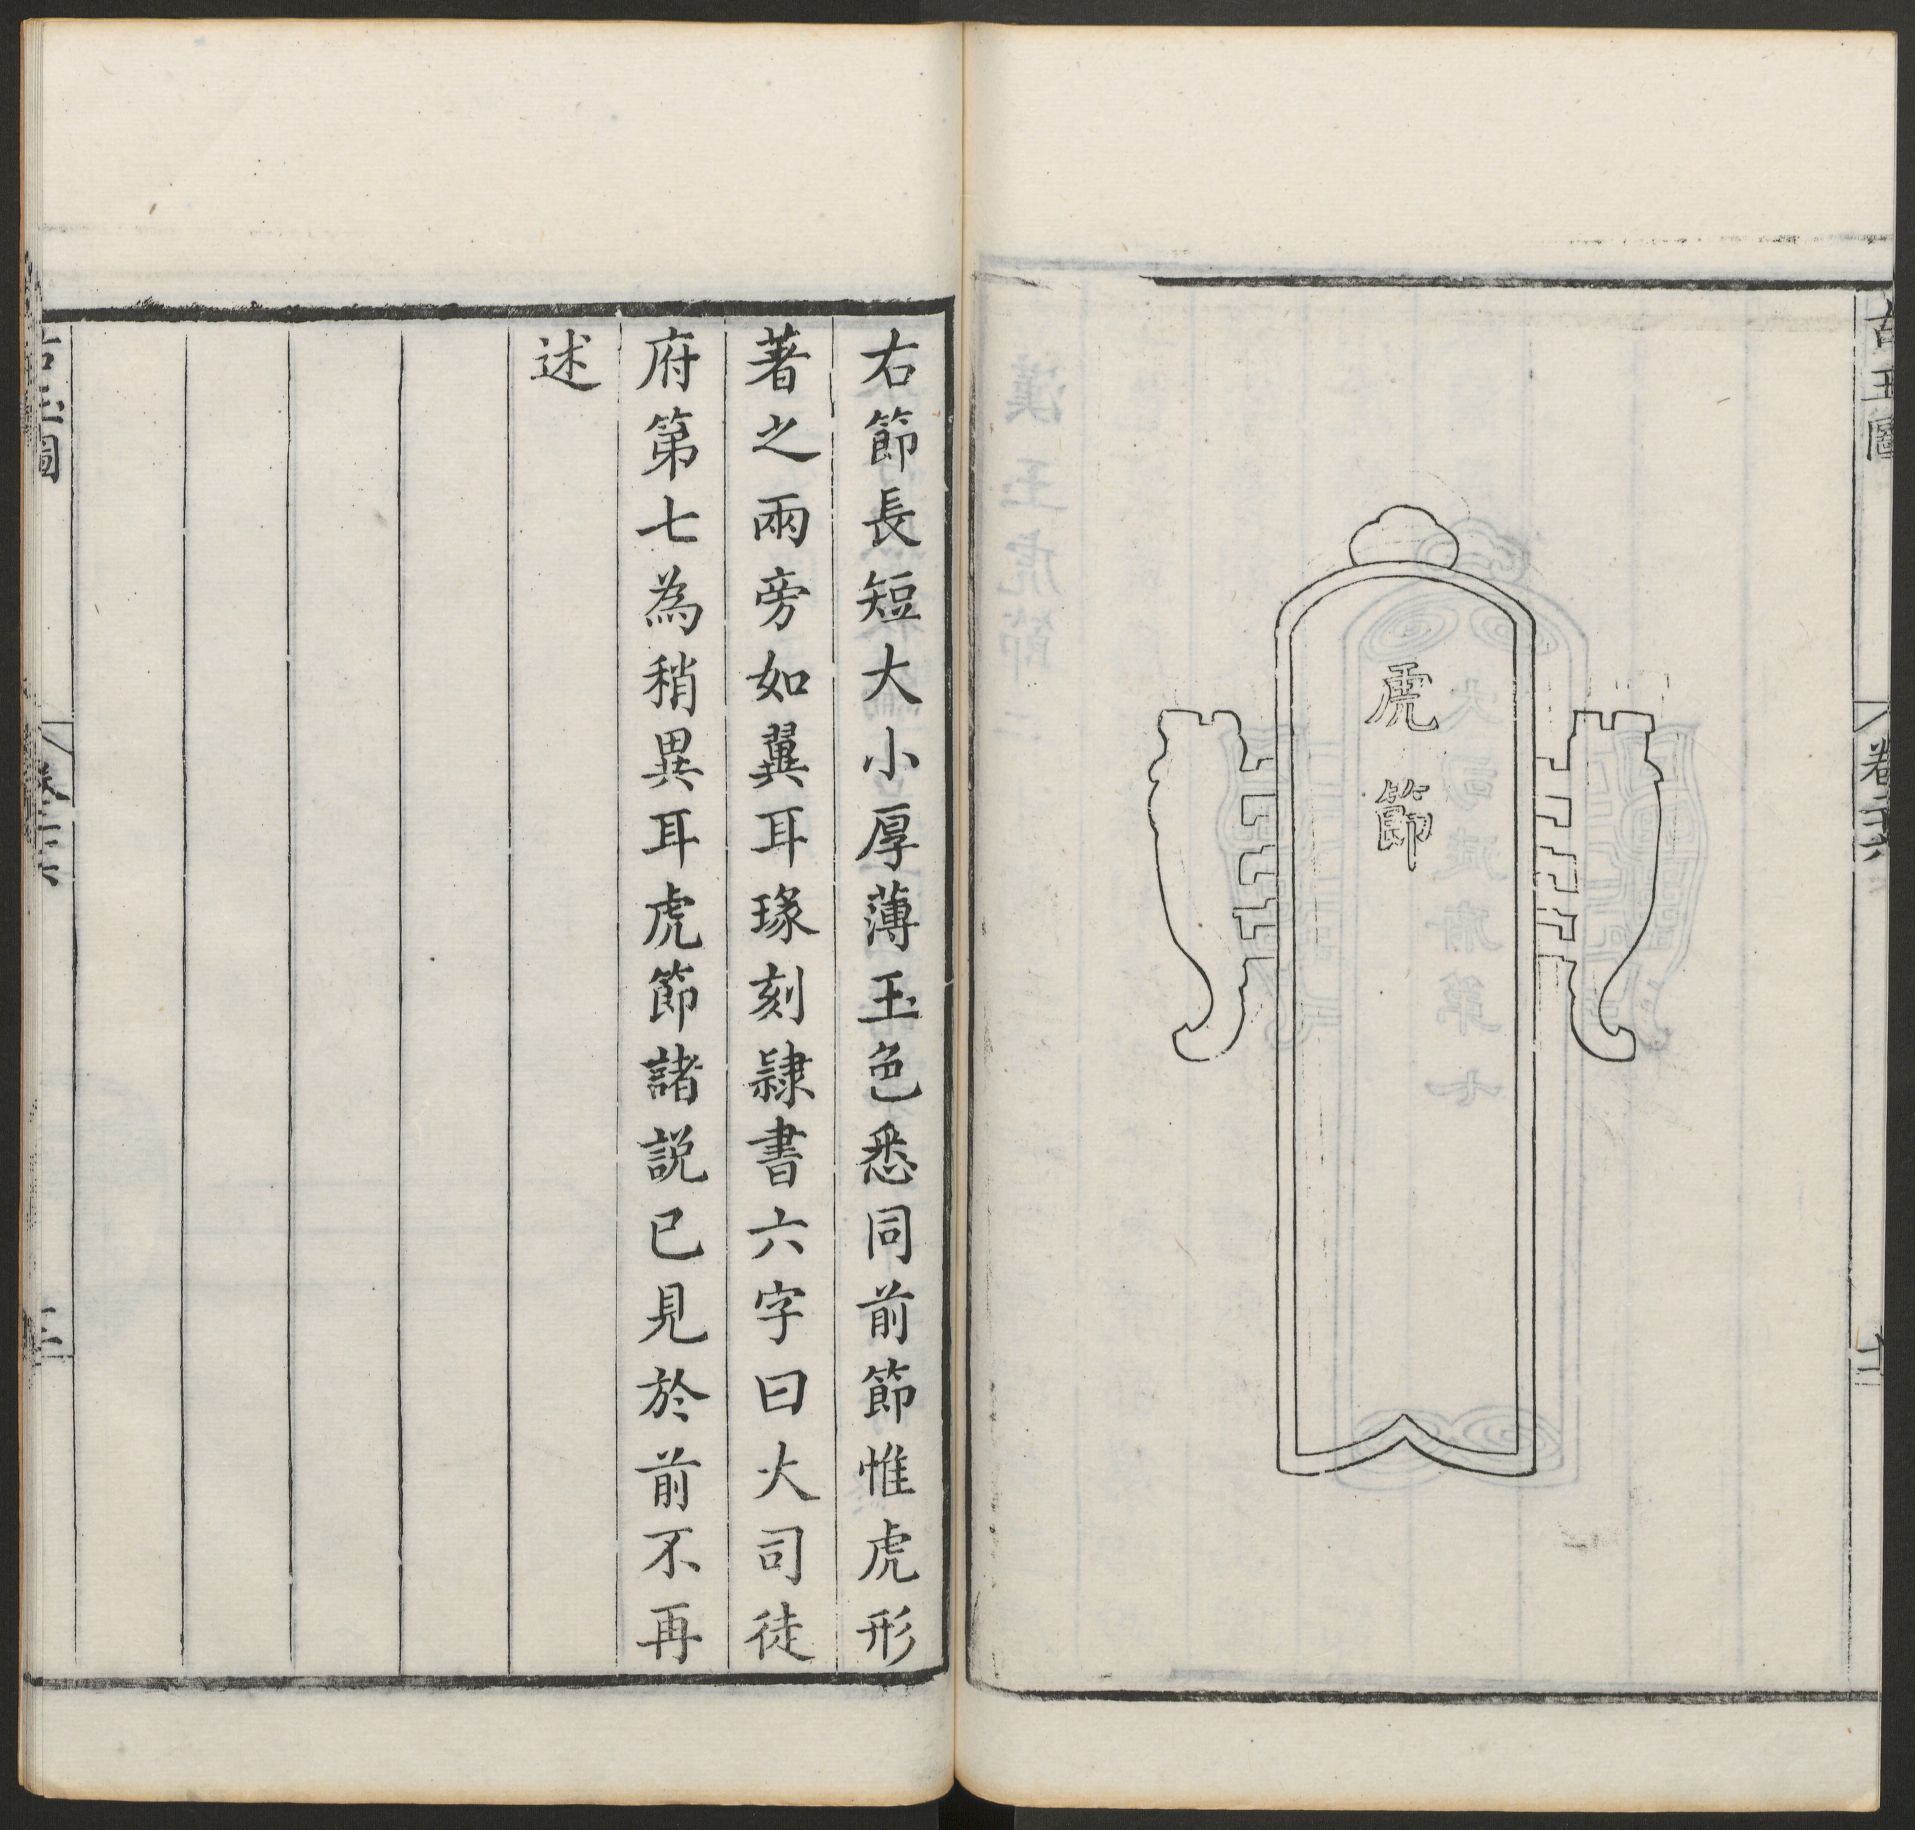 古玉圖
卷
虎節
右節長短大小厚薄玉色悉同前節惟虎形
著之兩旁如翼耳瑑刻隷書六字曰火司徒
府第七為稍異耳虎節諸説已見於前不再
述
古玉圖
卷